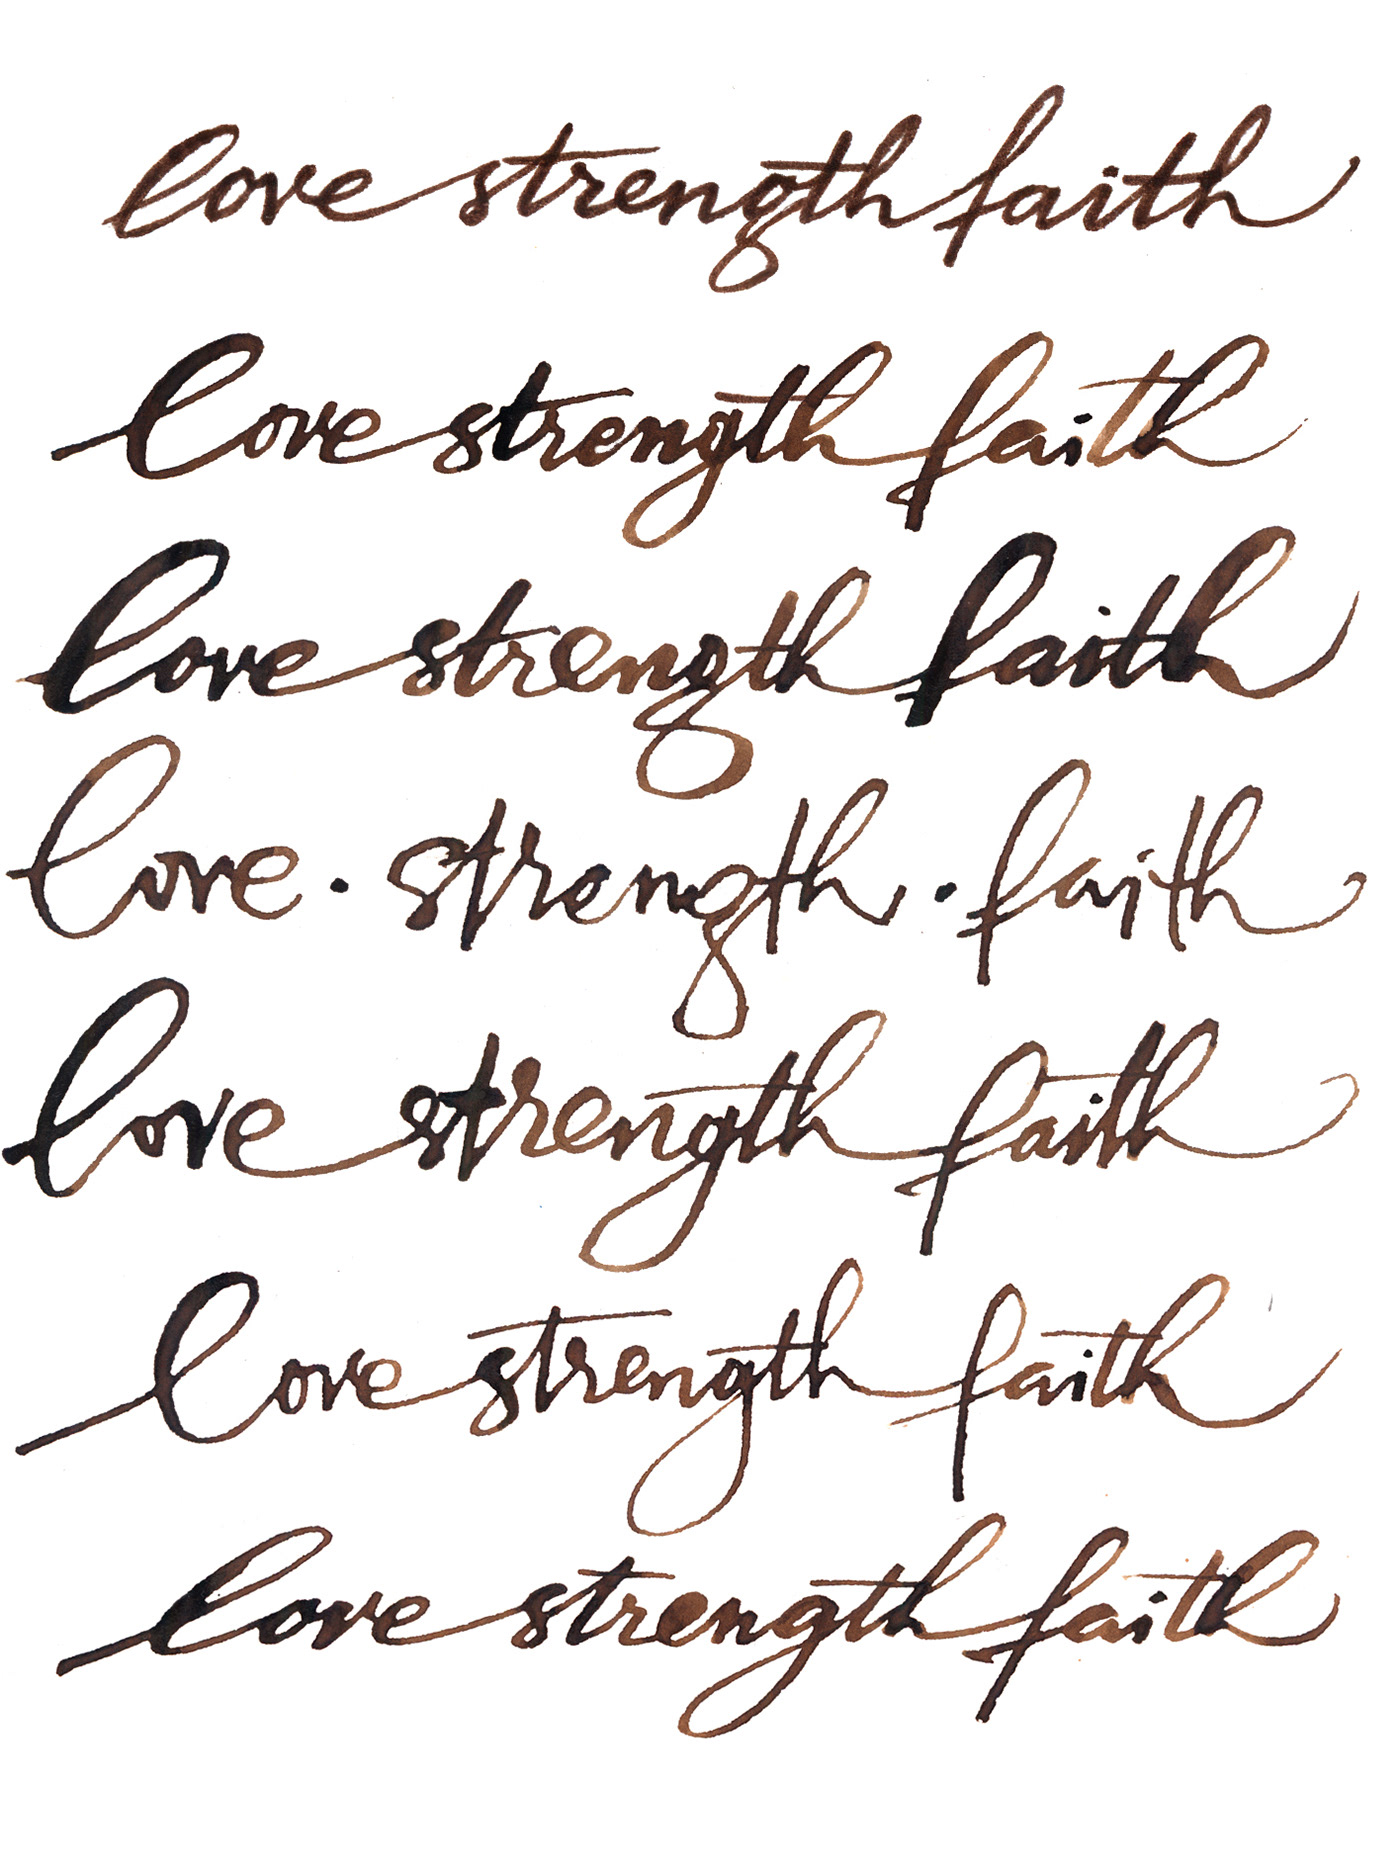 love strength faith
love strength faith
love strength faith
love · strength · faith
love strength faith
love strength faith
love strength faith